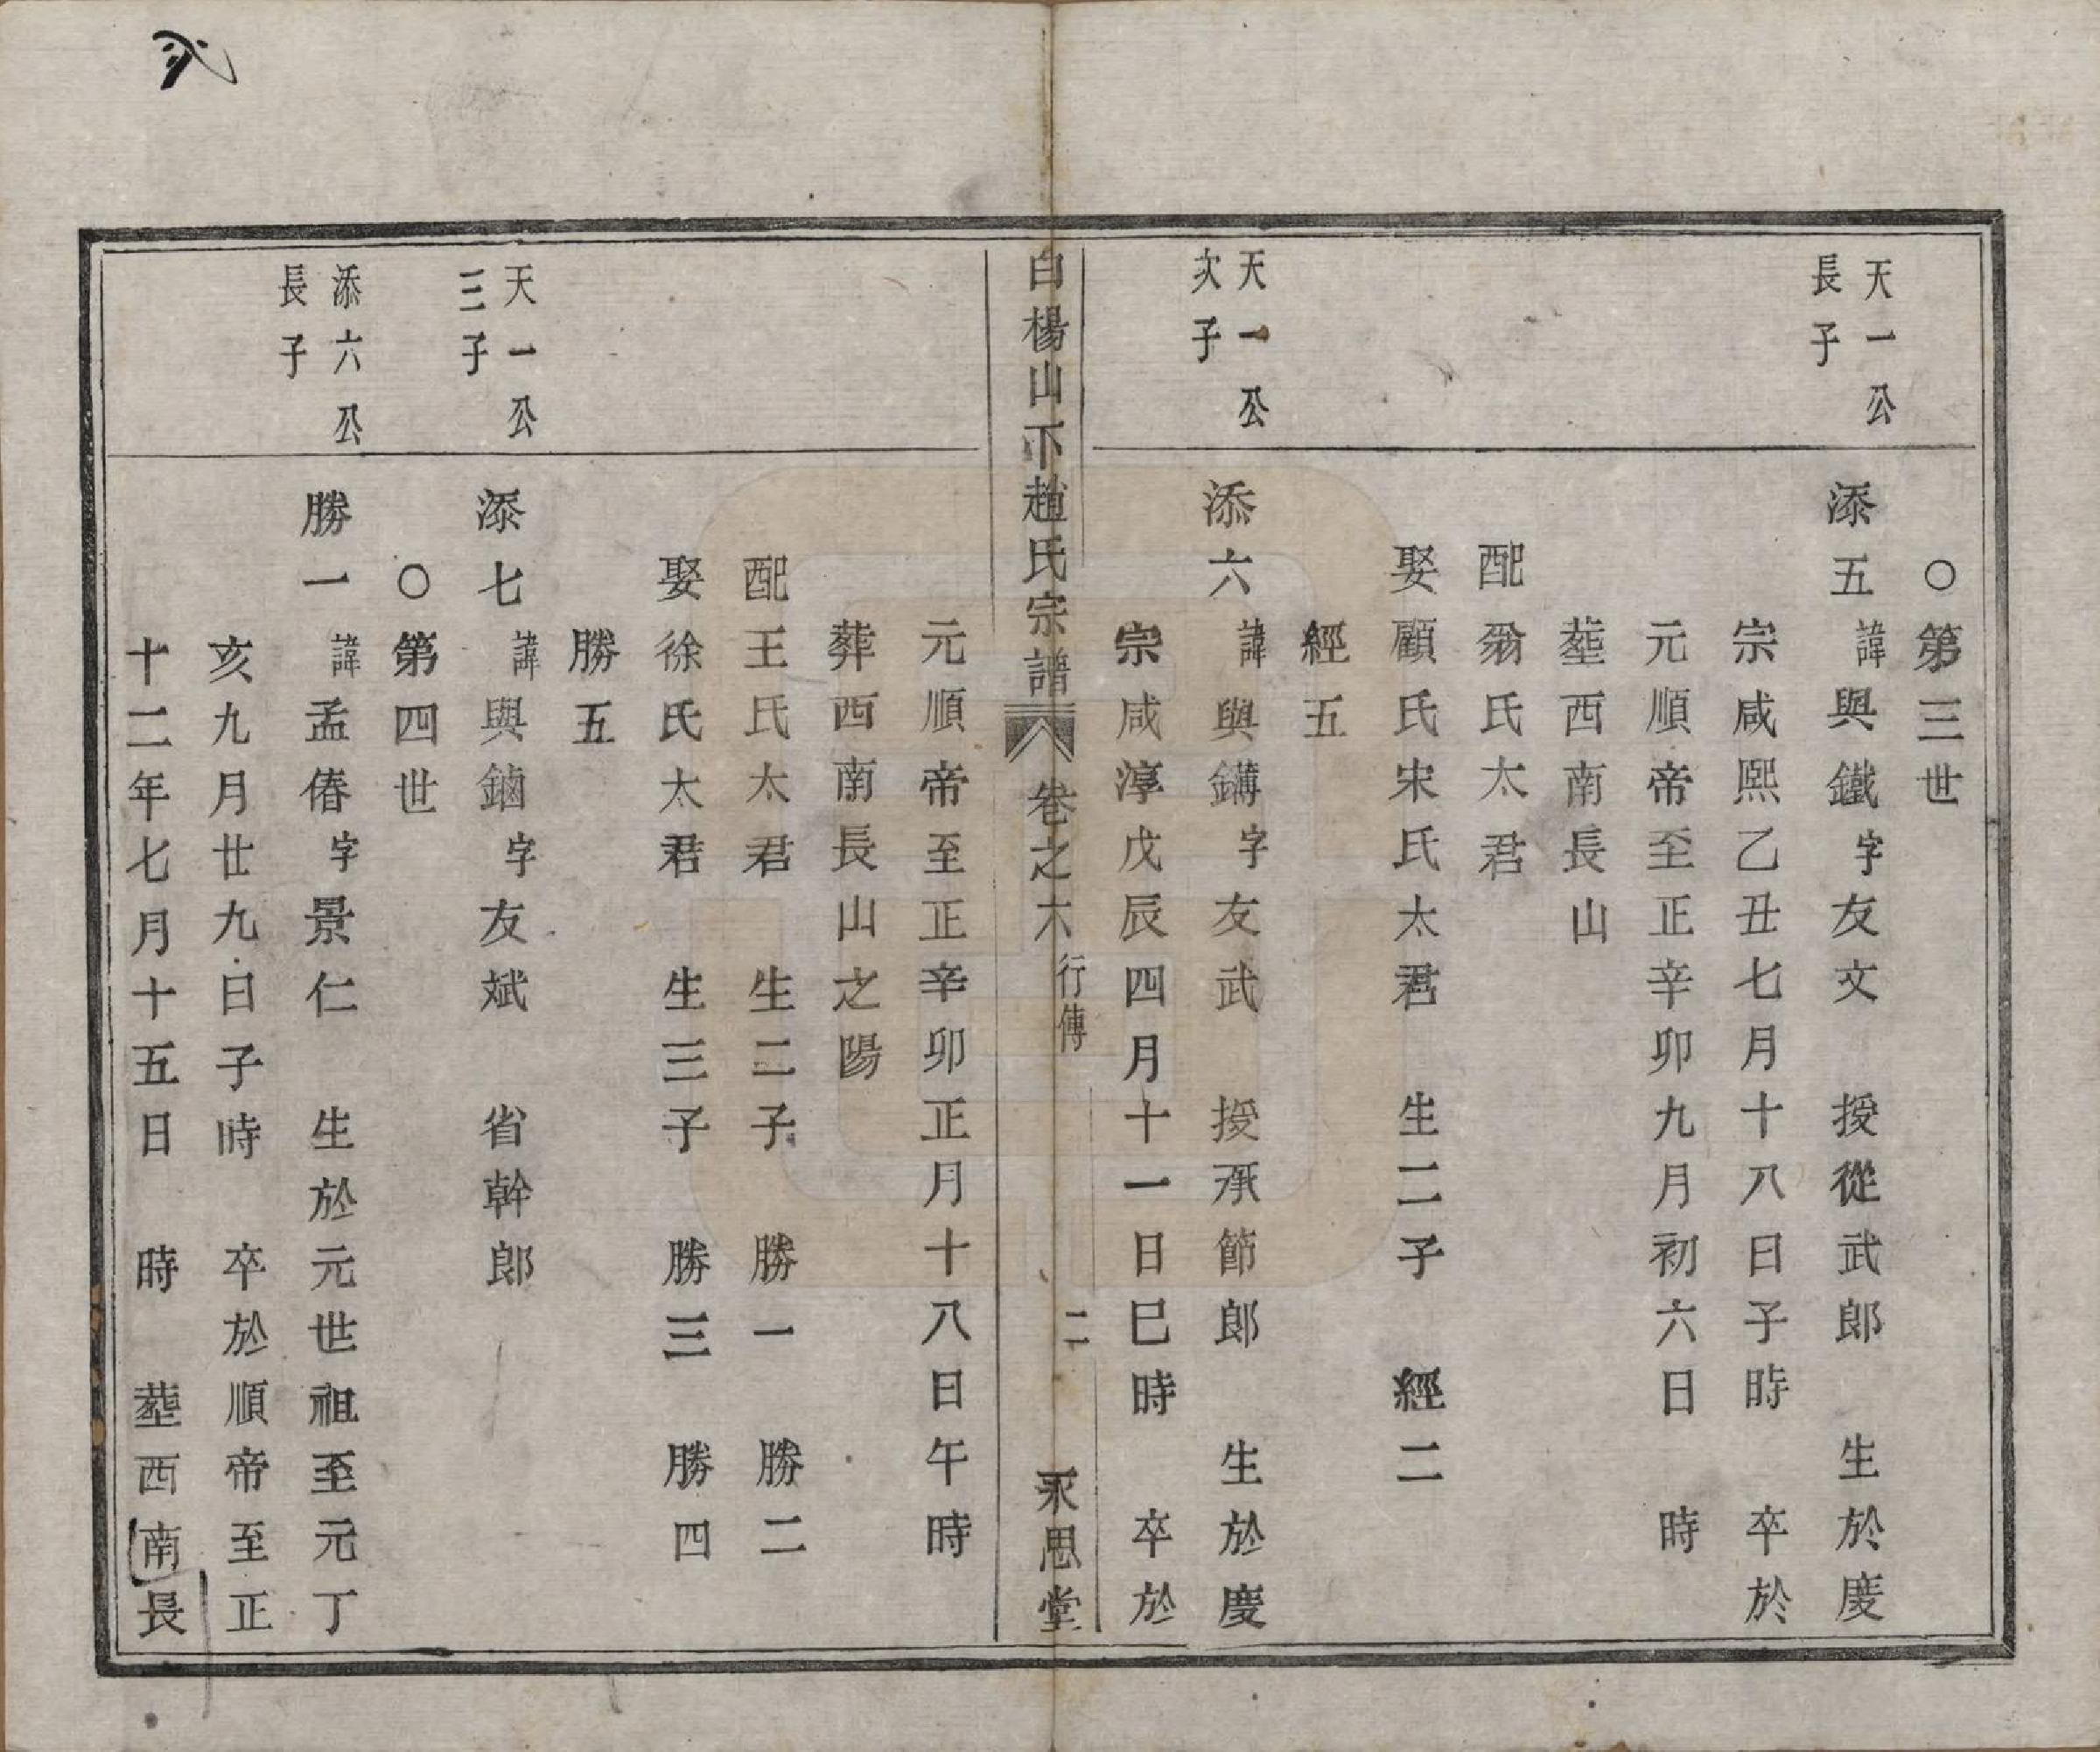 〇第三世
天一公
長子
添五諱與鐵字友文　授從武郎　生於慶
宗咸熙乙丑七月十八日子時　卒於
元順帝至正辛卯九月初六日　時
塟西南長山
配翁氏太君
娶顧氏宋氏太君　生二子　經二
經五
天一公
次子
添六諱與鏻字友武　授承節郎　生於慶
宗咸淳戊辰四月十一日巳時　卒於
白楊山下趙氏宗譜　卷之六　行傳　二　永思堂
元順帝至正辛卯正月十八日午時
葬西南長山之陽
配王氏太君　生二子　勝一　勝二
娶徐氏太君　生三子　勝三　勝四
勝五
天一公
三子
添七諱與鏀字友斌　省幹郎
〇第四世
添六公
長子
勝一諱孟偆字景仁　生於元世祖至元丁
亥九月廿九日子時　卒於順帝至正
十二年七月十五日　時　塟西南長